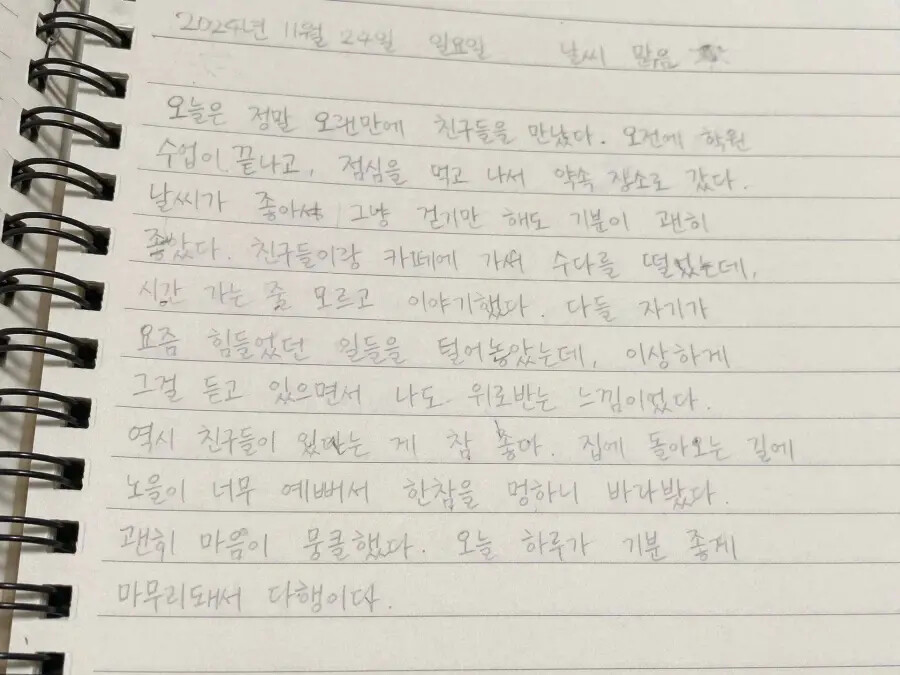 2024년 11월 24일 일요일 날씨 맑음
오늘은 정말 오랜만에 친구들을 만났다. 오전에 학원
수업이 끝나고, 점심을 먹고 나서 약속 장소로 갔다.
날씨가 좋아서 그냥 걷기만 해도 기분이 괜히
좋았다. 친구들이랑 카페에 가서 수다를 떨었는데,
시간 가는 줄 모르고 이야기했다. 다들 자기가
요즘 힘들었던 일들을 털어놓았는데, 이상하게
그걸 듣고 있으면서 나도 위로받는 느낌이었다.
역시 친구들이 있다는 게 참 좋아. 집에 돌아오는 길에
노을이 너무 예뻐서 한참을 멍하니 바라봤다.
괜히 마음이 뭉클했다. 오늘 하루가 기분 좋게
마무리돼서 다행이다.